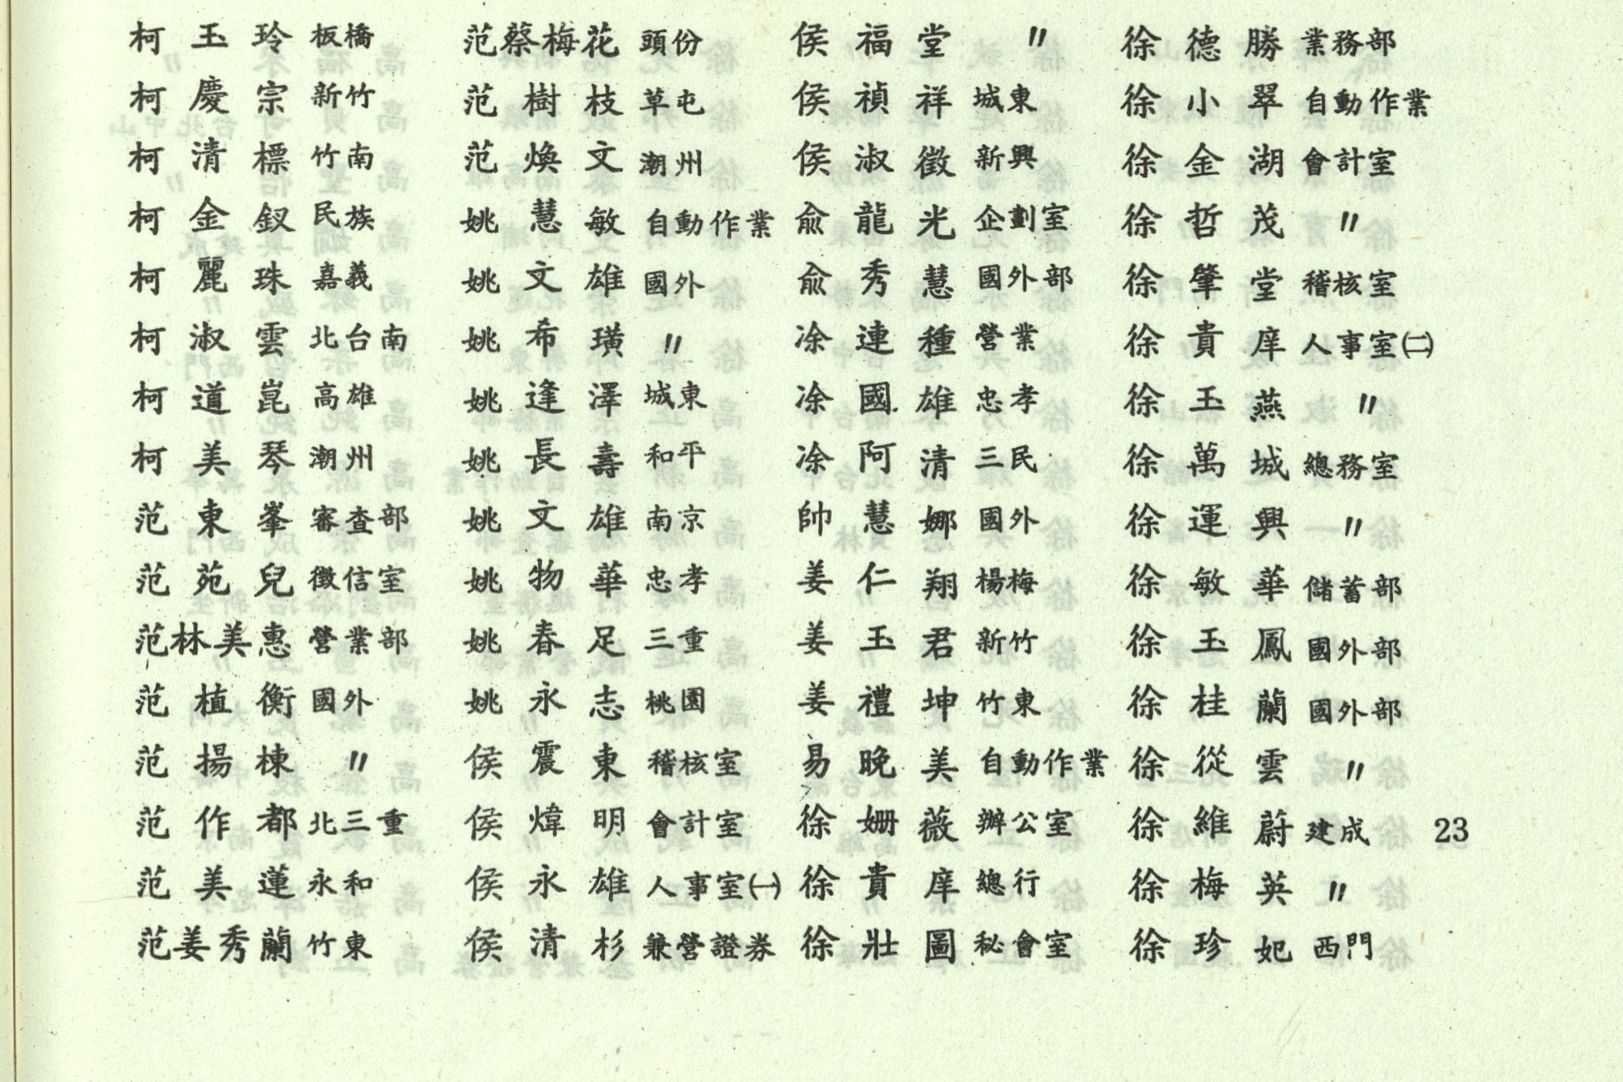 柯玉玲 板橋 范蔡梅花 頭份 侯福堂 〃 徐德勝 業務部
柯慶宗 新竹 范樹枝 草屯 侯禎祥 城東 徐小翠 自動作業
柯清標 竹南 范煥文 潮州 侯淑徵 新興 徐金湖 會計室
柯金釵 民族 姚慧敏 自動作業 俞龍光 企劃室 徐哲茂 〃
柯麗珠 嘉義 姚文雄 國外 俞秀慧 國外部 徐肇堂 稽核室
柯淑雲 北台南 姚布璜 〃 凃連種 營業 徐貴庠 人事室㈡
柯道崑 高雄 姚逢澤 城東 凃國雄 忠孝 徐玉燕 〃
柯美琴 潮州 姚長壽 和平 凃阿清 三民 徐萬城 總務室
范東峯 審查部 姚文雄 南京 帥慧娜 國外 徐運興 〃
范苑兒 徵信室 姚物華 忠孝 姜仁翔 楊梅 徐敏華 儲蓄部
范林美惠 營業部 姚春足 三重 姜玉君 新竹 徐玉鳳 國外部
范植衡 國外 姚永志 桃園 姜禮坤 竹東 徐桂蘭 國外部
范揚棟 〃 侯震東 稽核室 易晚美 自動作業 徐從雲 〃
范作都 北三重 侯煒明 會計室 徐姍薇 辦公室 徐維蔚 建成 23
范美蓮 永和 侯永雄 人事室㈠ 徐貴庠 總行 徐梅英 〃
范姜秀蘭 竹東 侯清杉 兼營證券 徐壯圖 秘會室 徐珍妃 西門